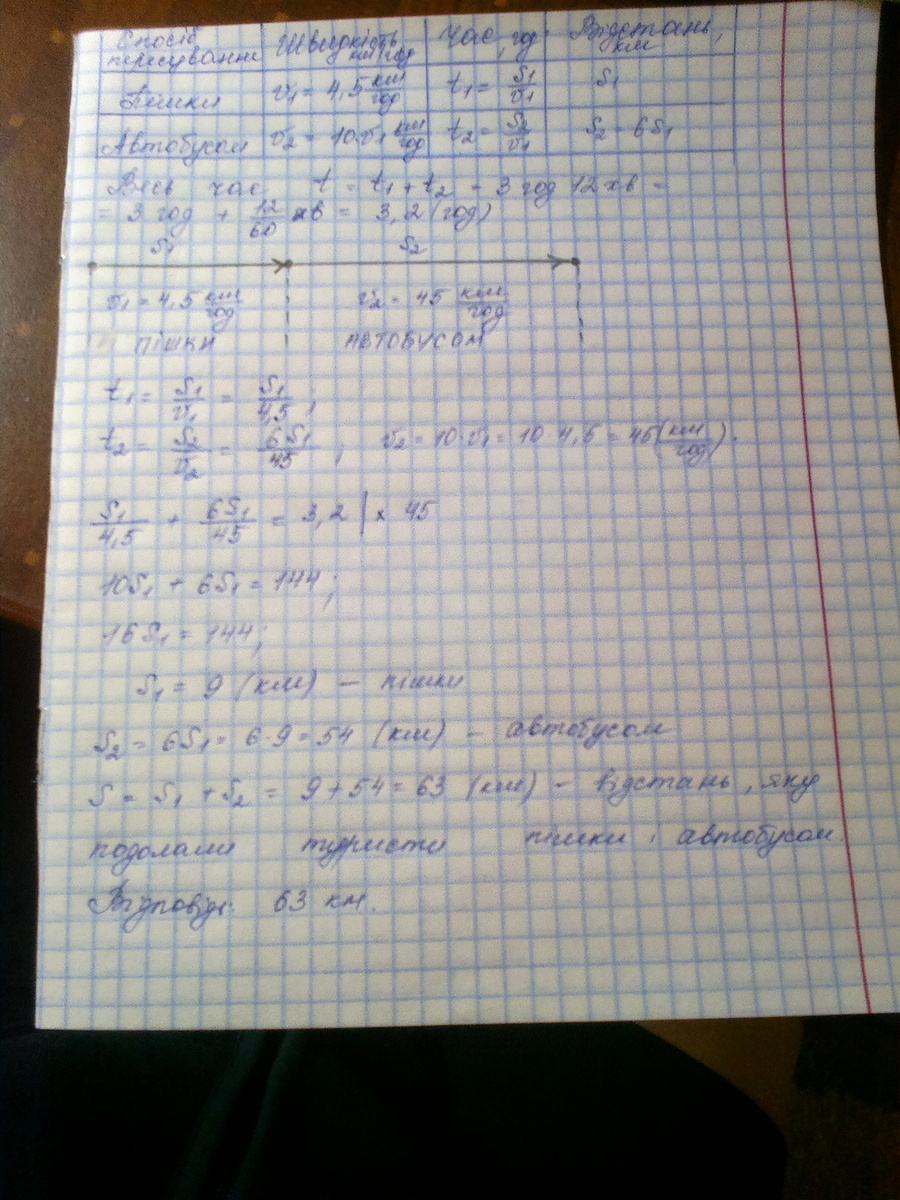 Спосіб пересування Швидкість км/год Час, год Відстань, км
Пішки v₁ = 4,5 км/год t₁ = S₁/v₁ S₁
Автобусом v₂ = 10·v₁ км/год t₂ = S₂/v₁ S₂ = 6S₁
Весь час t = t₁ + t₂ = 3 год 12 хв =
= 3 год + 12/60 хв = 3,2 (год)
S₁ S₂
v₁ = 4,5 км/год v₂ = 45 км/год
пішки автобусом
t₁ = S₁/v₁ = S₁/4,5 ;
t₂ = S₂/v₂ = 6S₁/45 ; v₂ = 10·v₁ = 10·4,5 = 45 (км/год).
S₁/4,5 + 6S₁/45 = 3,2 | × 45
10S₁ + 6S₁ = 144;
16S₁ = 144;
S₁ = 9 (км) – пішки
S₂ = 6S₁ = 6·9 = 54 (км) – автобусом
S = S₁ + S₂ = 9 + 54 = 63 (км) – відстань, яку
подолали туристи пішки і автобусом.
Відповідь: 63 км.